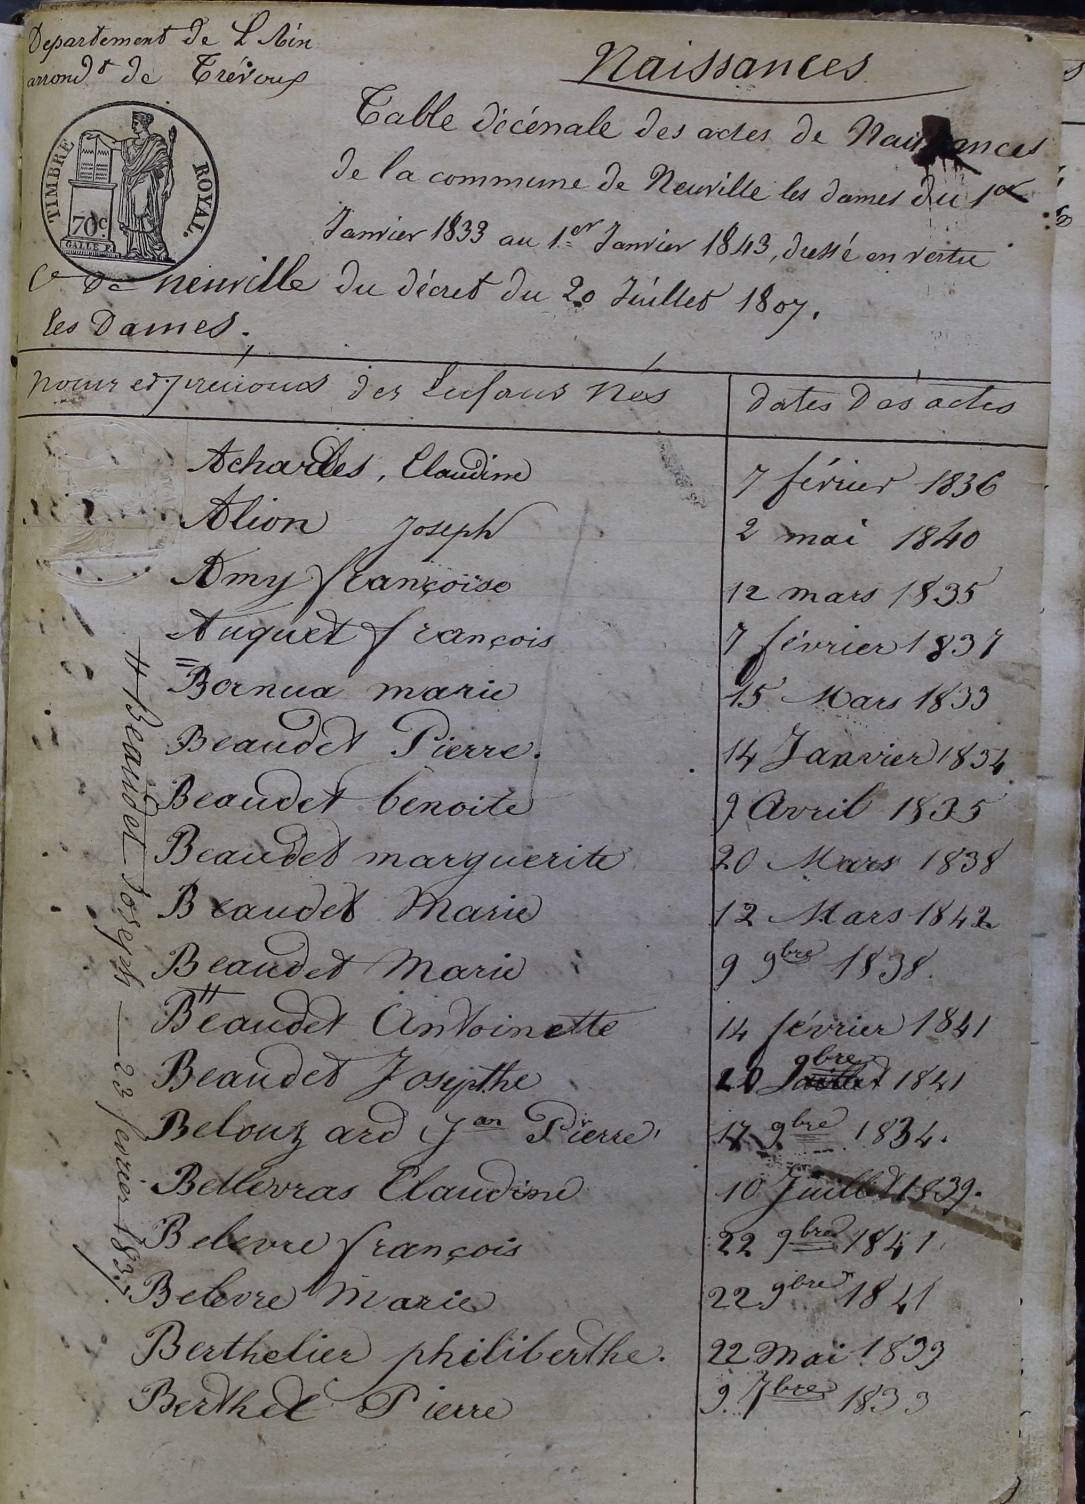 Departement de L'Ain
arrond.t de Trévoux
Naissances
TIMBRE ROYAL.
70c
Table décénale des actes de Naissances
de la commune de Neuville les dames du 1er
Janvier 1833 au 1er Janvier 1843, dressé en vertu
Ce De neuville du décret du 20 Juillet 1807.
les Dames.
noms et prénoms des Enfans Nés dates Des actes
Achardes, Claudine 7 février 1836
Alion Joseph 2 mai 1840
Amy françoise 12 mars 1835
Auquet françois 7 février 1837
Bornua marie 15 Mars 1833
Beaudet Pierre. 14 Janvier 1834
Beaudet benoite 9 Avril 1835
Beaudet marguerite 20 Mars 1838
Beaudet Marie 12 Mars 1842
Beaudet Marie 9 9bre 1838.
Beaudet Antoinette 14 février 1841
Beaudet Josepthe 20 9bre 1841
Belouzard Jan Pierre 17 9bre 1834.
Bellevras Claudine 10 Juillet 1839.
Belevre françois 22 9bre 1841
Belevre Marie 22 9bre 1841
Berthelier philiberthe. 22 Mai 1833
Berthet Pierre 9. 7bre 1833
# Beaudet Joseph — 23 fevrier 183